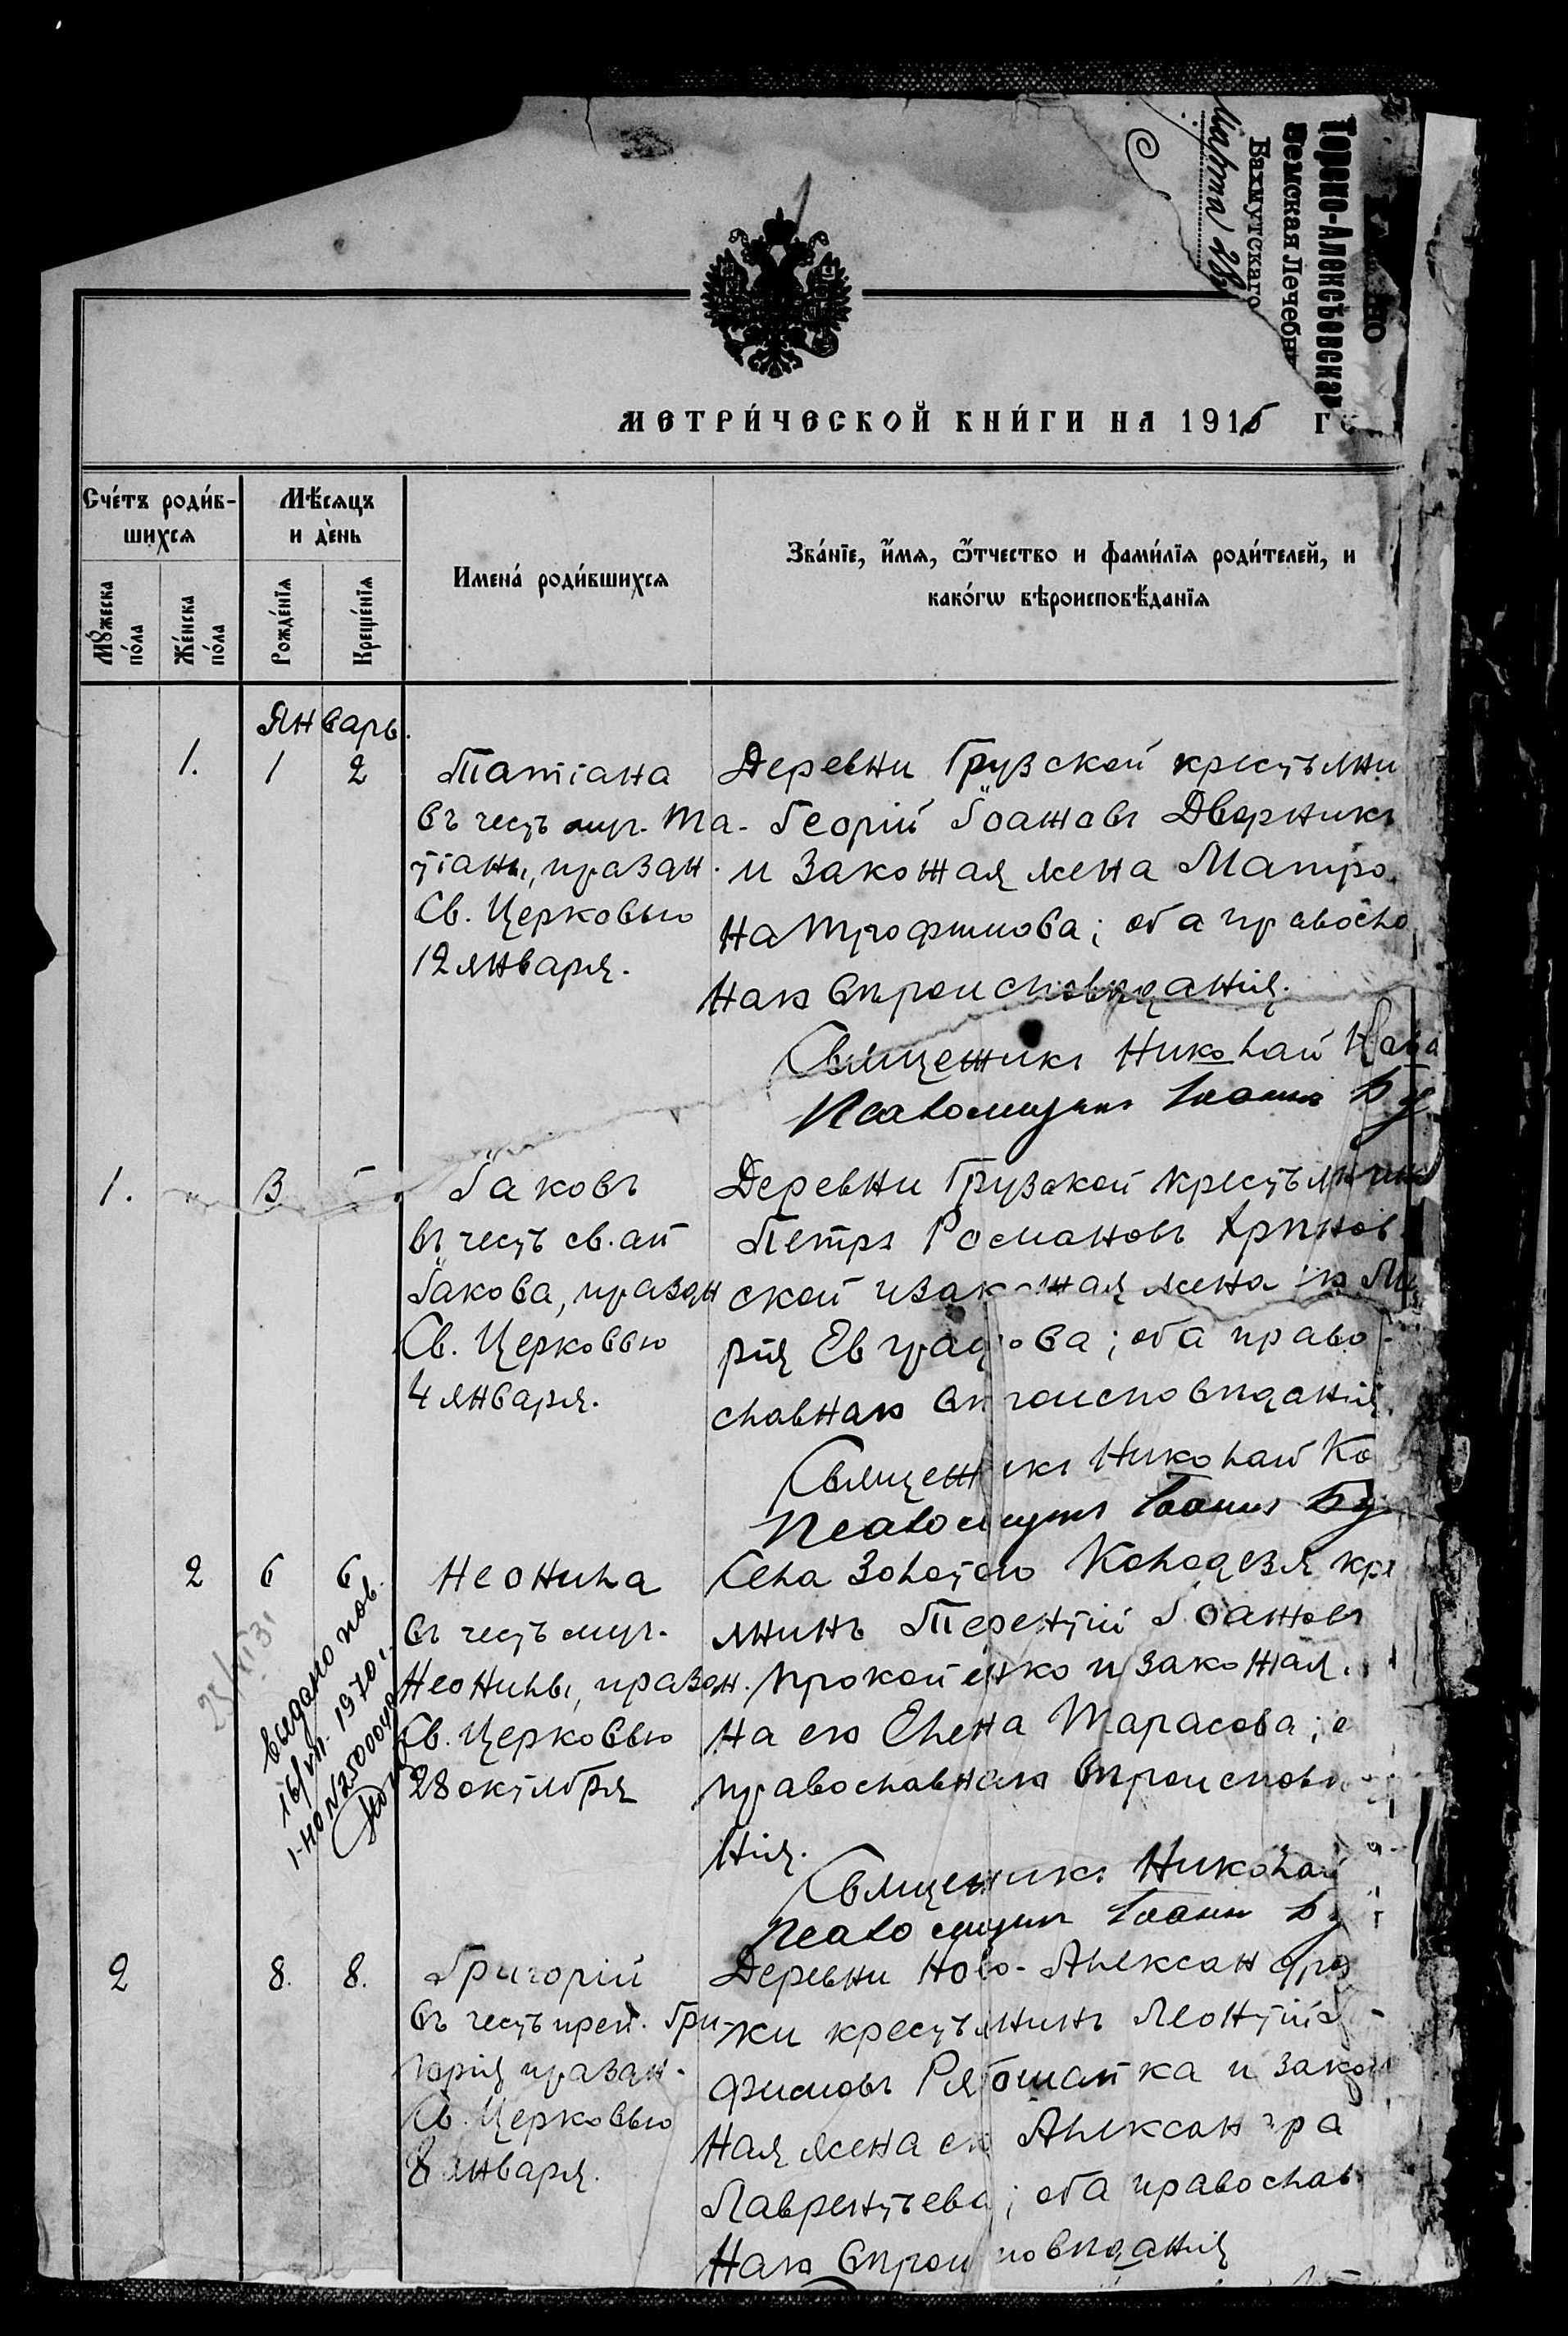 Торско-Алексѣевская
Земская Лечебн
Бахмутскаго
Марта 28
МЕТРИ́ЧЕСКОЙ КНИ́ГИ НА 1915
Сче́тъ роди́в-
шихсѧ
Мѣ́сѧцъ
и де́нь
Имена́ роди́вшихсѧ
Зва́нїе, и҆́мѧ, ѻ҆́тчество и фами́лїѧ роди́телей, и
како́гѡ вѣроисповѣ́данїѧ
Мꙋ́жеска
по́ла
Же́нска
по́ла
Рожде́нїѧ
Креще́нїѧ
Январь.
1. 1 2
Татіана
въ честь муч. Та-
тіаны, праздн.
Св. Церковью
12 января.
Деревни Грузской крестьяни
Георгій Іоанновъ Дворникъ
и законная жена Матро
на Трофимова; оба правосла
наго вѣроисповѣданія.
Священникъ Николай
Псаломщикъ Іоаннъ
1. 3
Іаковъ
въ честь св. ап
Іакова, праздн
Св. Церковью
4 января.
Деревни Грузской крестьянинъ
Петръ Романовъ
ской и законная жена
рія Евграфова; оба право-
славнаго вѣроисповѣданія.
Священникъ Николай Ко
Псаломщикъ Іоаннъ
2 6 6
Неонила
въ честь муч.
Неонилы, праздн.
Св. Церковью
28 октября
Села Золотого Колодезя кре
янинъ Терентій Іоанновъ
Прокопенко и законная
на его Елена Тарасова;
православнаго вѣроисповѣ
нія.
Священникъ Николай
Псаломщикъ Іоаннъ
выдано пов.
16/VII. 1970 г.
2 8. 8.
Григорій
въ честь преп. Гри-
горія праздн.
Св. Церковью
8 января.
Деревни Ново-Александров
ки крестьянинъ Леонтій
фимовъ Рябошапка и закон
ная жена его Александра
Лаврентьева; оба православ
наго вѣроисповѣданія